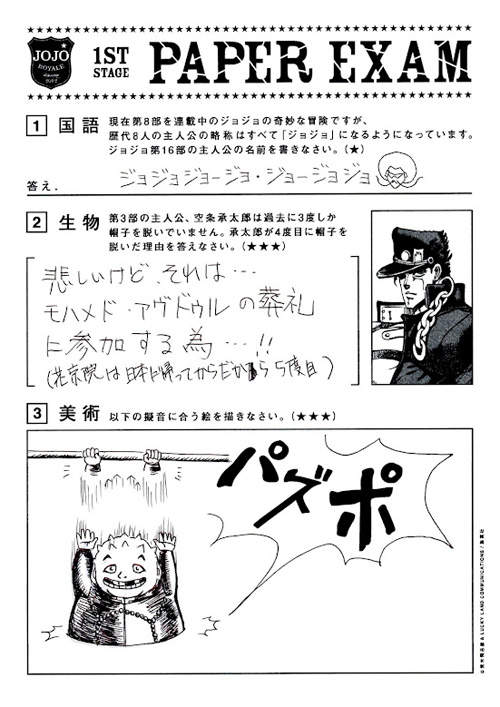 JOJO
ROYALE
1ST
STAGE
PAPER EXAM
1 国語 現在第8部を連載中のジョジョの奇妙な冒険ですが、
歴代8人の主人公の略称はすべて「ジョジョ」になるようになっています。
ジョジョ第16部の主人公の名前を書きなさい。(★)
答え. ジョジョジョージョ・ジョージョジョ
2 生物 第3部の主人公、空条承太郎は過去に3度しか
帽子を脱いでいません。承太郎が4度目に帽子を
脱いだ理由を答えなさい。(★★★)
悲しいけど、それは…
モハメド・アヴドゥルの葬礼
に参加する為…!!
(花京院は日本に帰ってからだから5度目)
3 美術 以下の擬音に合う絵を描きなさい。(★★★)
パズポ
©荒木飛呂彦&LUCKY LAND COMMUNICATIONS/集英社